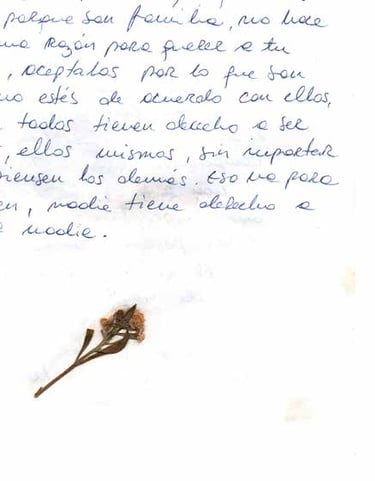 porque son familia, no hace
una razón para querer a tu
, aceptalos por lo que son
no estés de acuerdo con ellos,
todos tienen derecho a ser
, ellos mismos, sin importar
piensen los demás. Eso va para
en, nadie tiene derecho a
nadie.